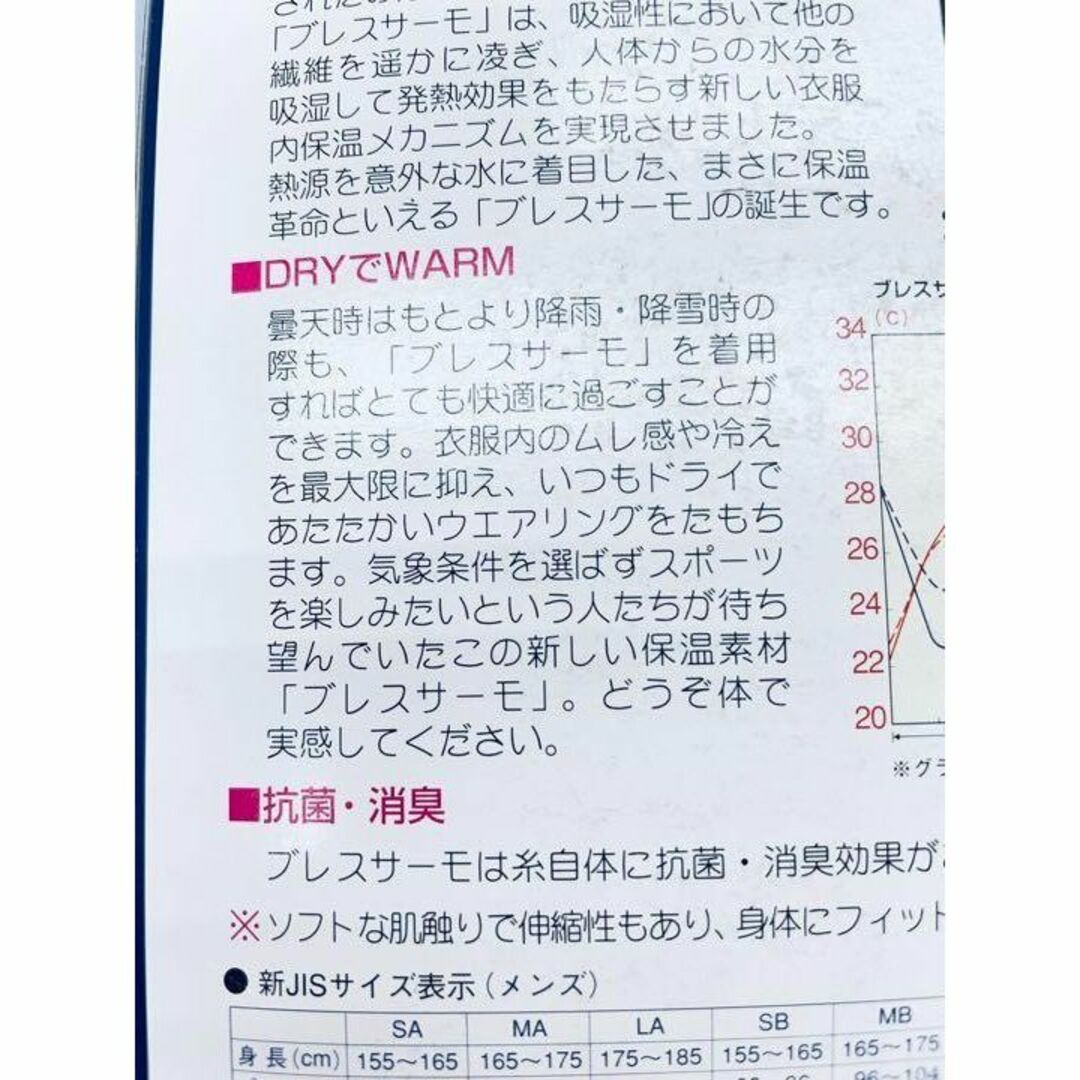 「ブレスサーモ」は、吸湿性において他の
繊維を遥かに凌ぎ、人体からの水分を
吸湿して発熱効果をもたらす新しい衣服
内保温メカニズムを実現させました。
熱源を意外な水に着目した、まさに保温
革命といえる「ブレスサーモ」の誕生です。
■DRYでWARM
曇天時はもとより降雨・降雪時の
際も、「ブレスサーモ」を着用
すればとても快適に過ごすことが
できます。衣服内のムレ感や冷え
を最大限に抑え、いつもドライで
あたたかいウエアリングをたもち
ます。気象条件を選ばずスポーツ
を楽しみたいという人たちが待ち
望んでいたこの新しい保温素材
「ブレスサーモ」。どうぞ体で
実感してください。
ブレスサ
(℃)
34
32
30
28
26
24
22
20
※グラ
■抗菌・消臭
ブレスサーモは糸自体に抗菌・消臭効果が
※ソフトな肌触りで伸縮性もあり、身体にフィット
●新JISサイズ表示(メンズ)
SA MA LA SB MB
身長(cm) 155〜165 165〜175 175〜185 155〜165 165〜175
96〜104